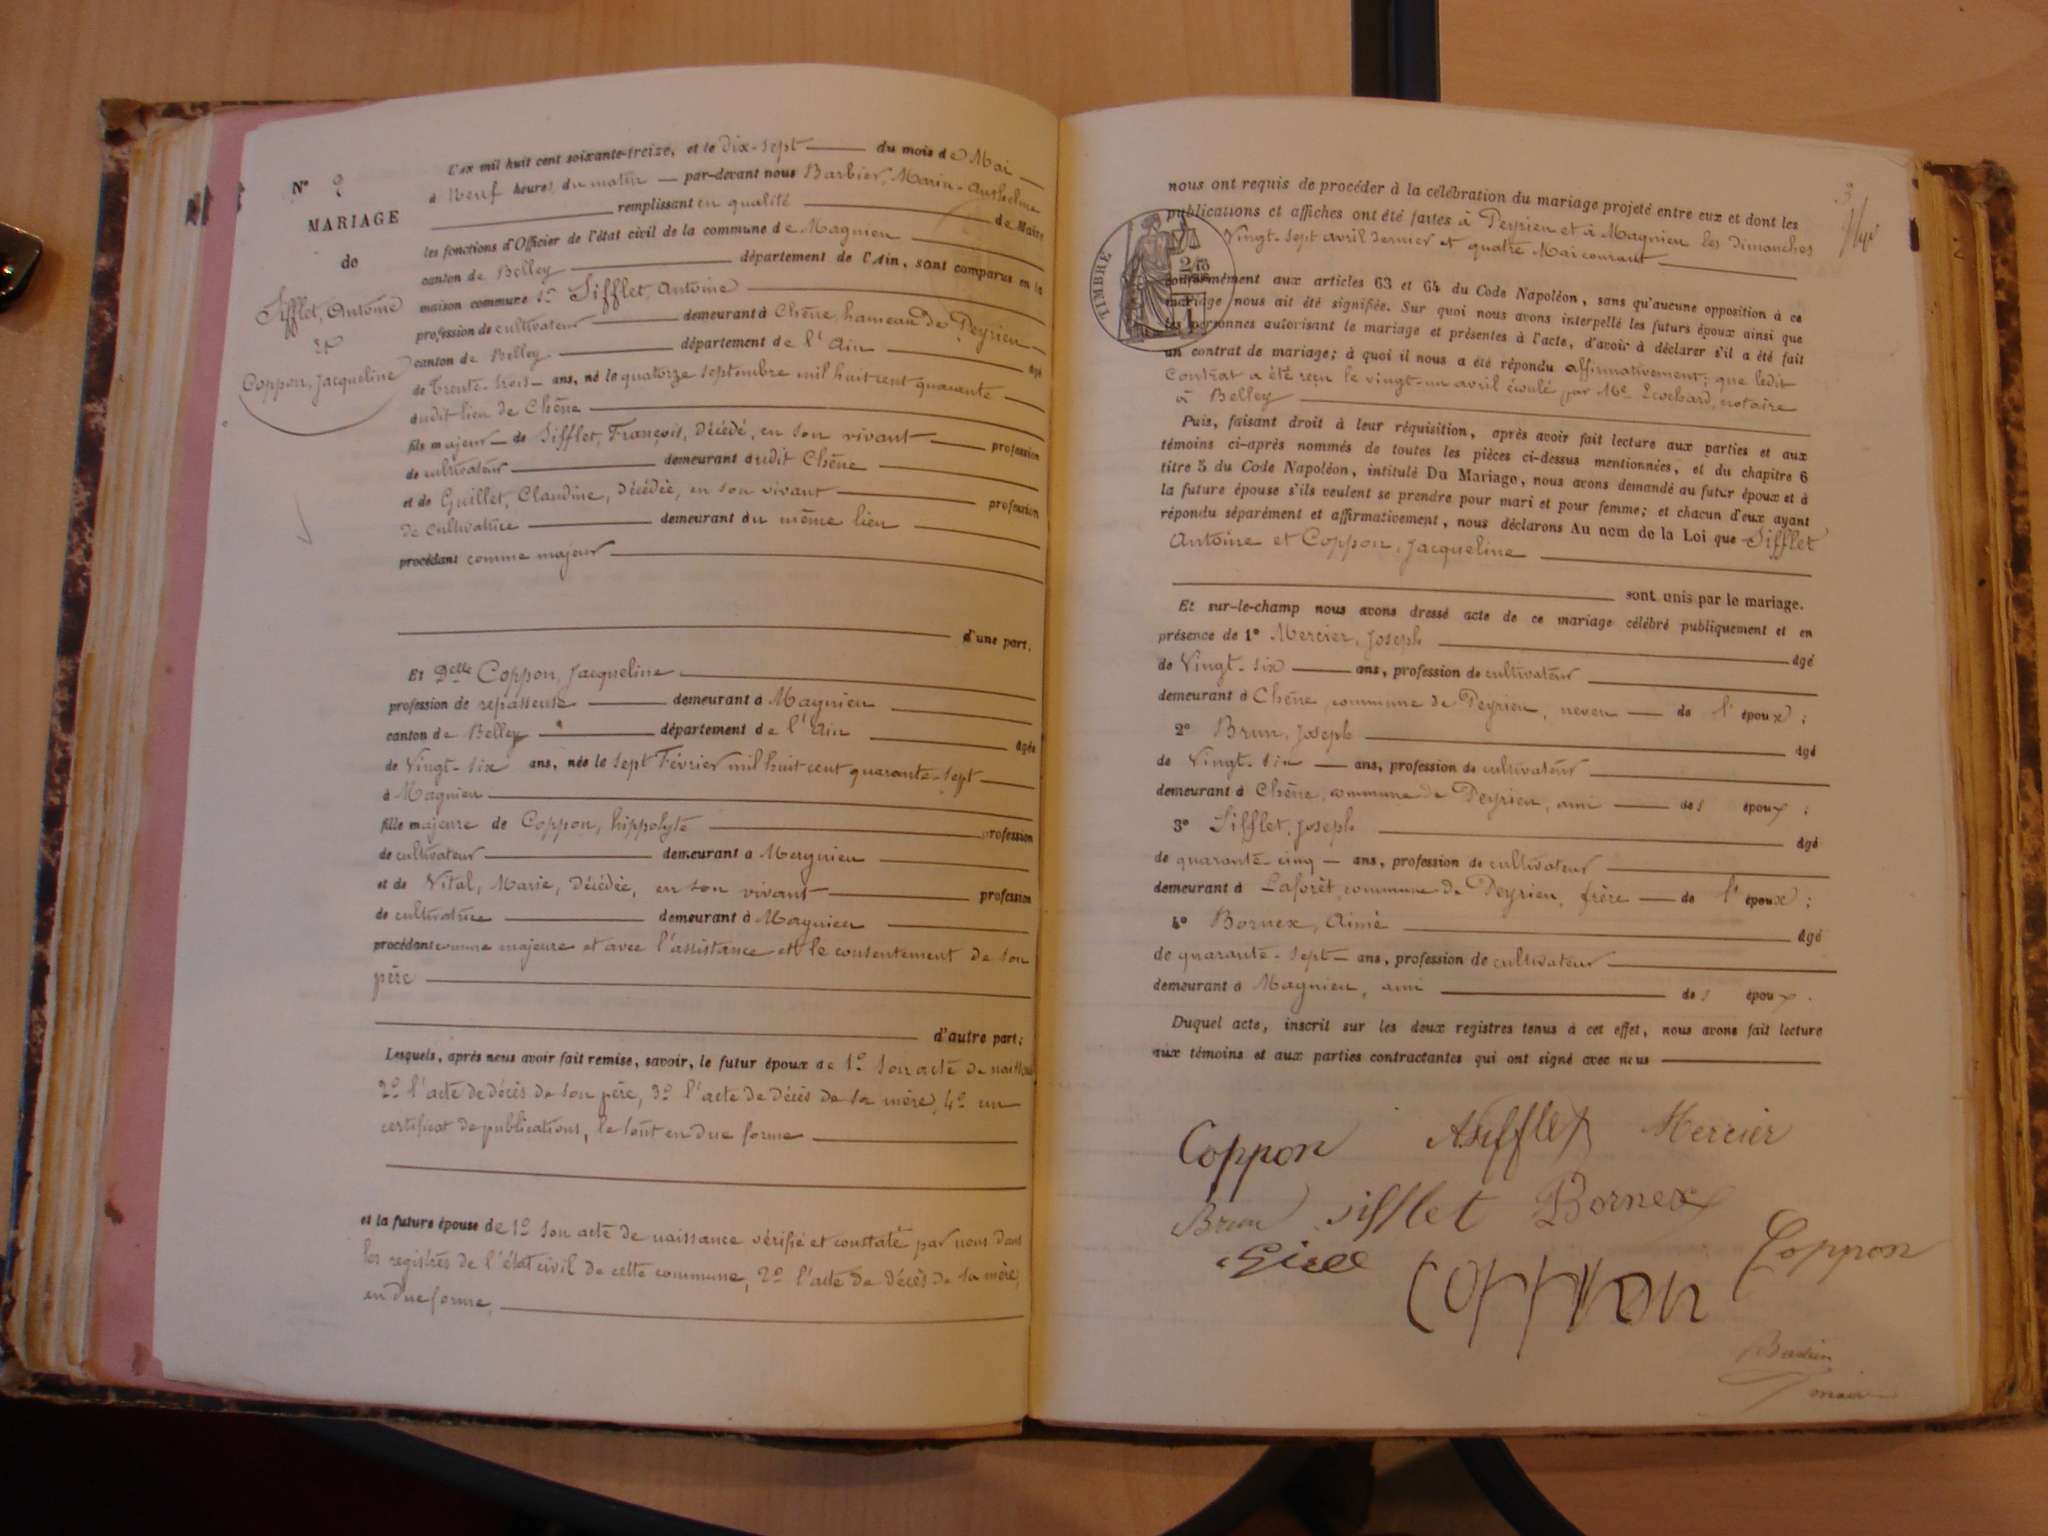 N° 2
MARIAGE
de
Sifflet, Antoine
et
Coppon, Jacqueline
L'an mil huit cent soixante-treize, et le dix-sept du mois de Mai
à Neuf heures du matin par-devant nous Barbier, Marin-Anthelme
remplissant en qualité de Maire
les fonctions d'Officier de l'état civil de la commune de Magnieu
canton de Belley département de l'Ain, sont comparus en la
maison commune 1° Sifflet, Antoine
profession de cultivateur demeurant à Chêne, hameau de Peyrieu
canton de Belley département de l'Ain âgé
de Trente-trois ans, né le quatorze septembre mil huit cent quarante
audit lieu de Chêne
fils majeur de Sifflet, François, décédé, en son vivant profession
de cultivateur demeurant audit Chêne
et de Guillet, Claudine, décédée, en son vivant profession
de cultivatrice demeurant au même lieu
procédant comme majeur
d'une part.
Et Delle Coppon, Jacqueline
profession de repasseuse demeurant à Magnieu
canton de Belley département de l'Ain âgée
de Vingt-six ans, née le sept Février mil huit cent quarante-sept
à Magnieu
fille majeure de Coppon, hippolyte profession
de cultivateur demeurant à Magnieu
et de Vital, Marie, décédée, en son vivant profession
de cultivatrice demeurant à Magnieu
procédant comme majeure et avec l'assistance et le consentement de son
père
d'autre part;
Lesquels, après nous avoir fait remise, savoir, le futur époux de 1° son acte de naissance
2° l'acte de décès de son père, 3° l'acte de décès de sa mère, 4° un
certificat de publications, le tout en due forme
et la future épouse de 1° son acte de naissance vérifié et constaté par nous dans
les registres de l'état civil de cette commune, 2° l'acte de décès de sa mère,
en due forme,
3
nous ont requis de procéder à la célébration du mariage projeté entre eux et dont les
publications et affiches ont été faites à Peyrieu et à Magnieu les dimanches
Vingt-sept avril dernier et quatre Mai courant
conformément aux articles 63 et 64 du Code Napoléon, sans qu'aucune opposition à ce
mariage nous ait été signifiée. Sur quoi nous avons interpellé les futurs époux ainsi que
les personnes autorisant le mariage et présentes à l'acte, d'avoir à déclarer s'il a été fait
un contrat de mariage; à quoi il nous a été répondu affirmativement; que ledit
Contrat a été reçu le vingt-un avril écoulé par Me Ecochard, notaire
à Belley
TIMBRE
Puis, faisant droit à leur réquisition, après avoir fait lecture aux parties et aux
témoins ci-après nommés de toutes les pièces ci-dessus mentionnées, et du chapitre 6
titre 5 du Code Napoléon, intitulé Du Mariage, nous avons demandé au futur époux et à
la future épouse s'ils veulent se prendre pour mari et pour femme; et chacun d'eux ayant
répondu séparément et affirmativement, nous déclarons Au nom de la Loi que Sifflet
Antoine et Coppon, Jacqueline
sont unis par le mariage.
Et sur-le-champ nous avons dressé acte de ce mariage célébré publiquement et en
présence de 1° Mercier, Joseph âgé
de Vingt-six ans, profession de cultivateur
demeurant à Chêne, commune de Peyrieu, neveu de l'époux;
2° Brun, Joseph âgé
de Vingt-six ans, profession de cultivateur
demeurant à Chêne, commune de Peyrieu, ami des époux;
3° Sifflet, Joseph âgé
de quarante-cinq ans, profession de cultivateur
demeurant à Laforêt, commune de Peyrieu, frère de l'époux;
4° Bornex, Aimé âgé
de quarante-sept ans, profession de cultivateur
demeurant à Magnieu, ami des époux.
Duquel acte, inscrit sur les deux registres tenus à cet effet, nous avons fait lecture
aux témoins et aux parties contractantes qui ont signé avec nous
Coppon ASifflet Mercier
Brun Sifflet Bornex
Coppon Coppon
maire